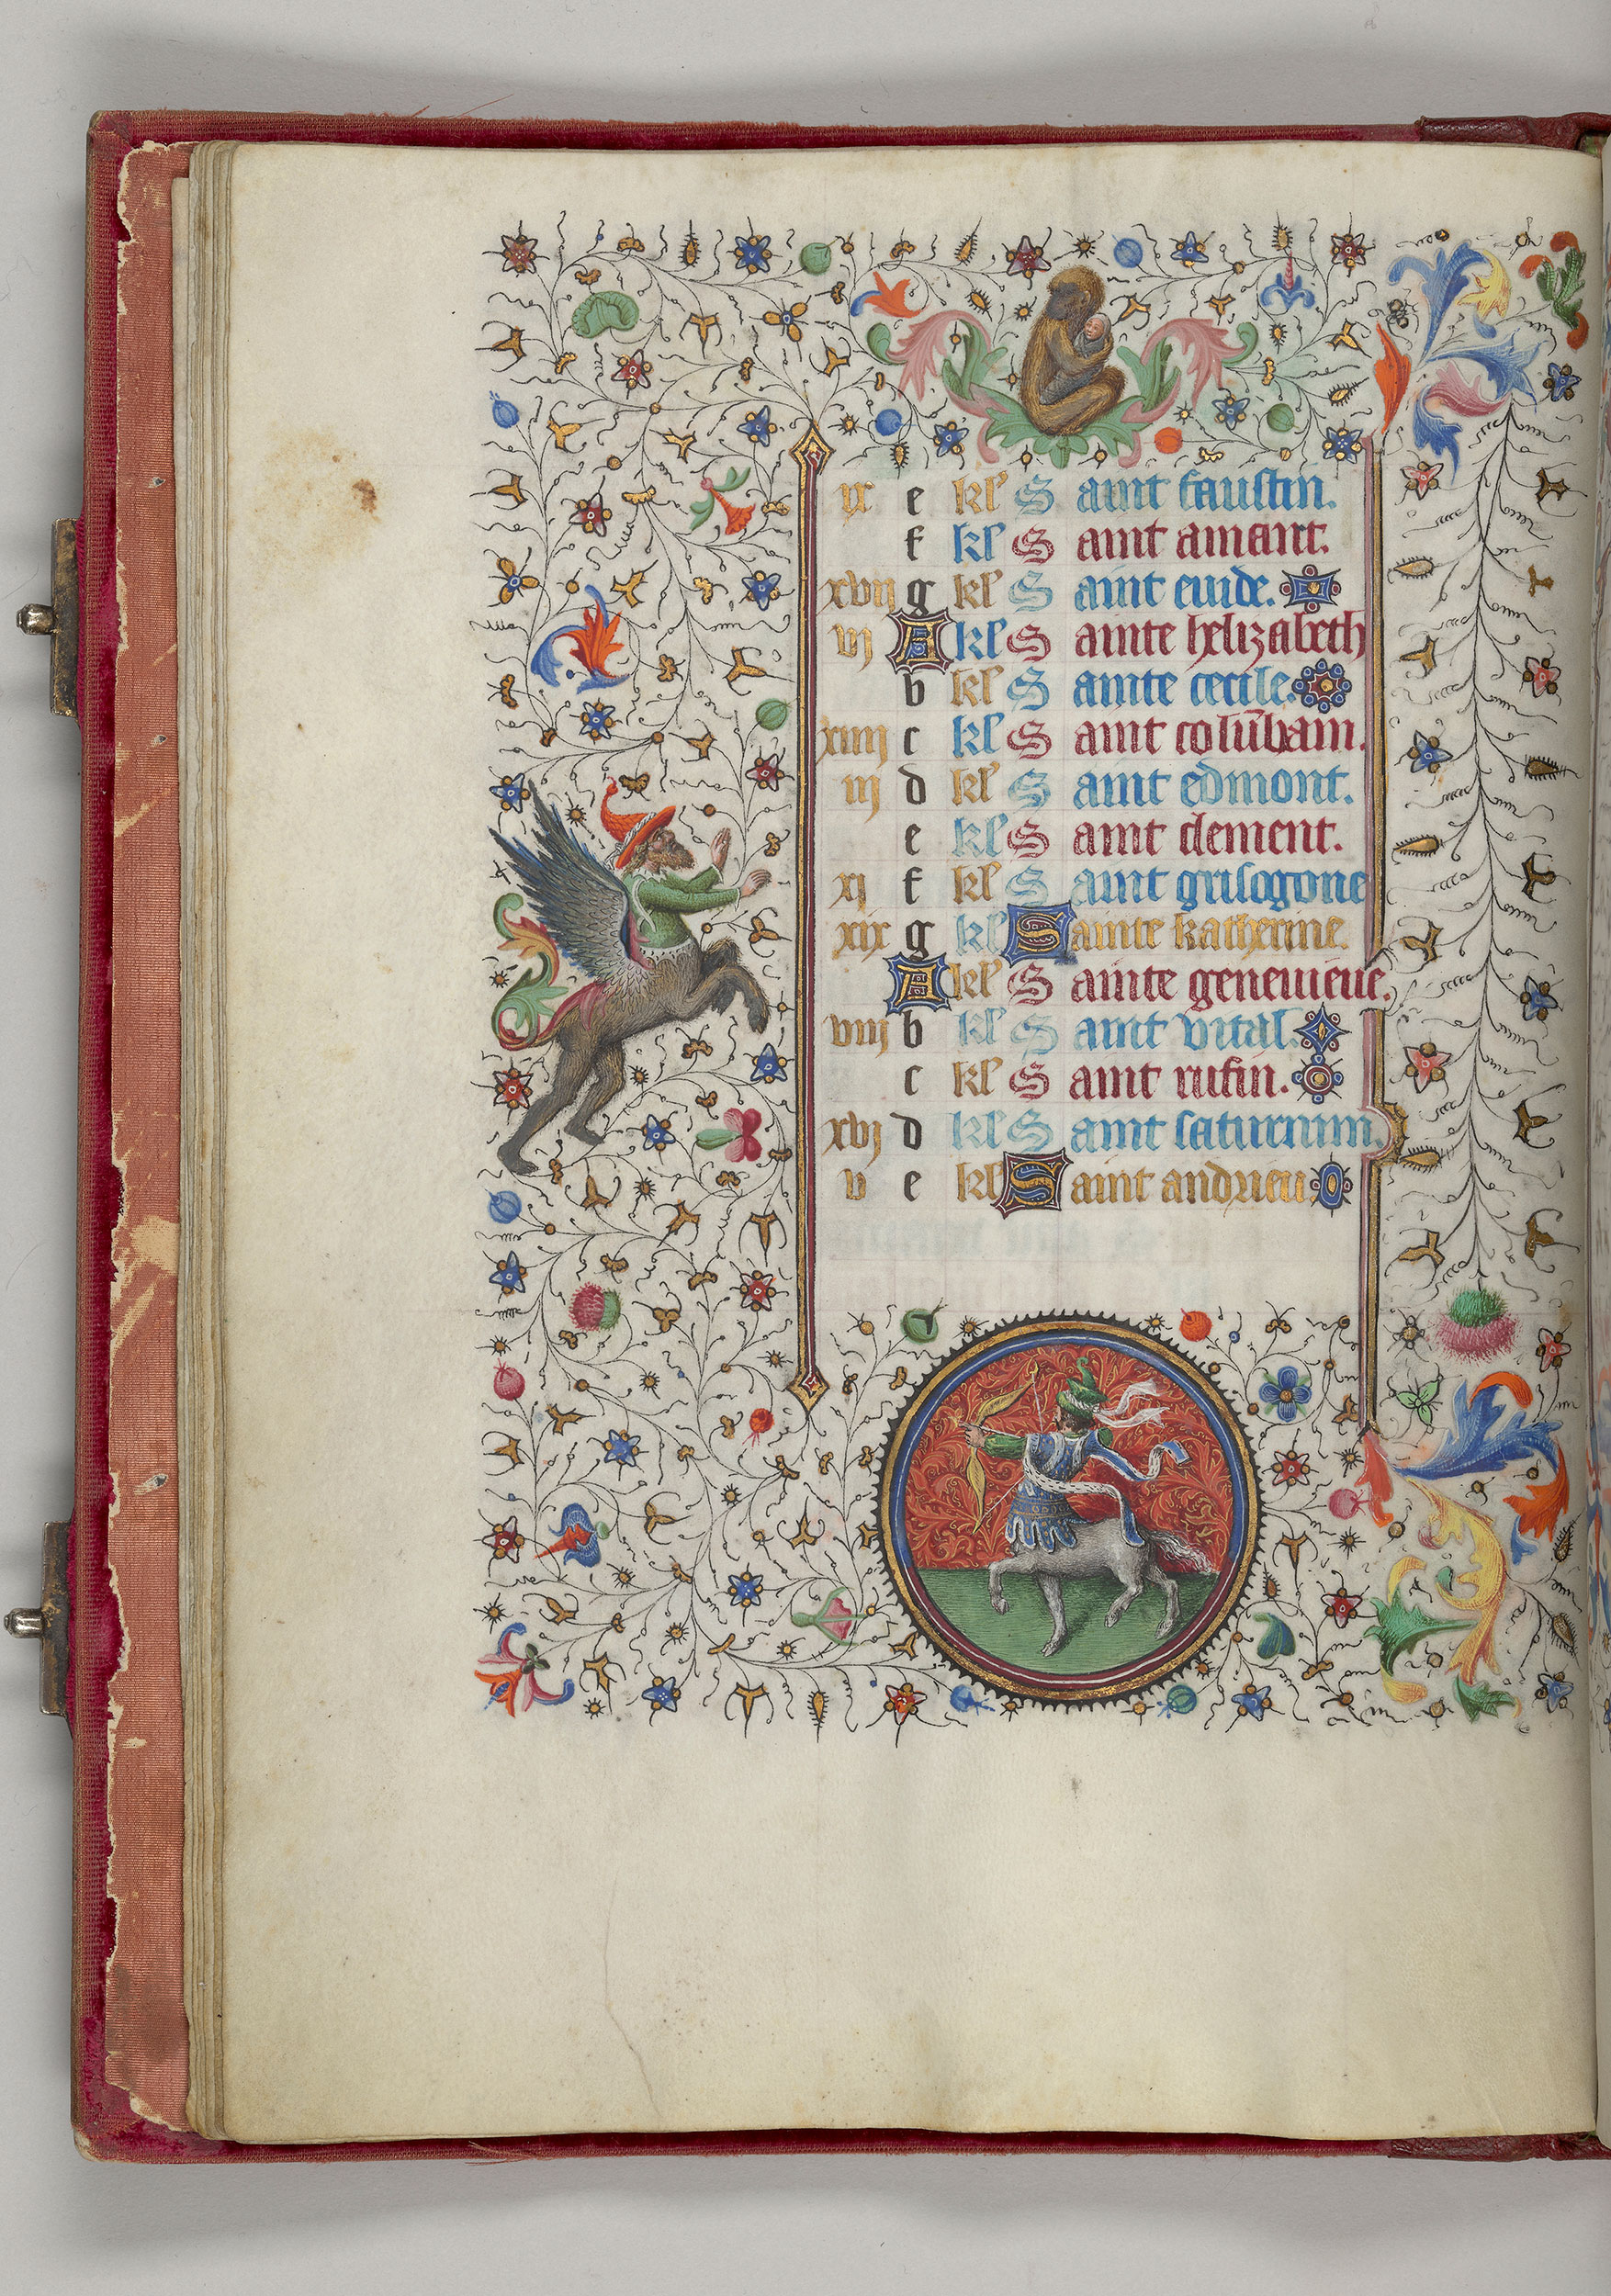 ix e kl' S aint faustin.
f kl' S aint amant.
xvii g kl' S aint euide.
vi A kl S ainte helizabeth
b kl' S ainte cecile.
xiiii c kl' S aint colūbain.
iii d kl' S aint edmont.
e kl' S aint clement.
xi f kl' S aint grisogone
xix g kl' Sainte katherine.
A kl' S ainte geneuieue.
viii b kl' S aint vital.
c kl' S aint rufin.
xvi d kl' S aint saturnnin.
v e kl' Saint andrieu.